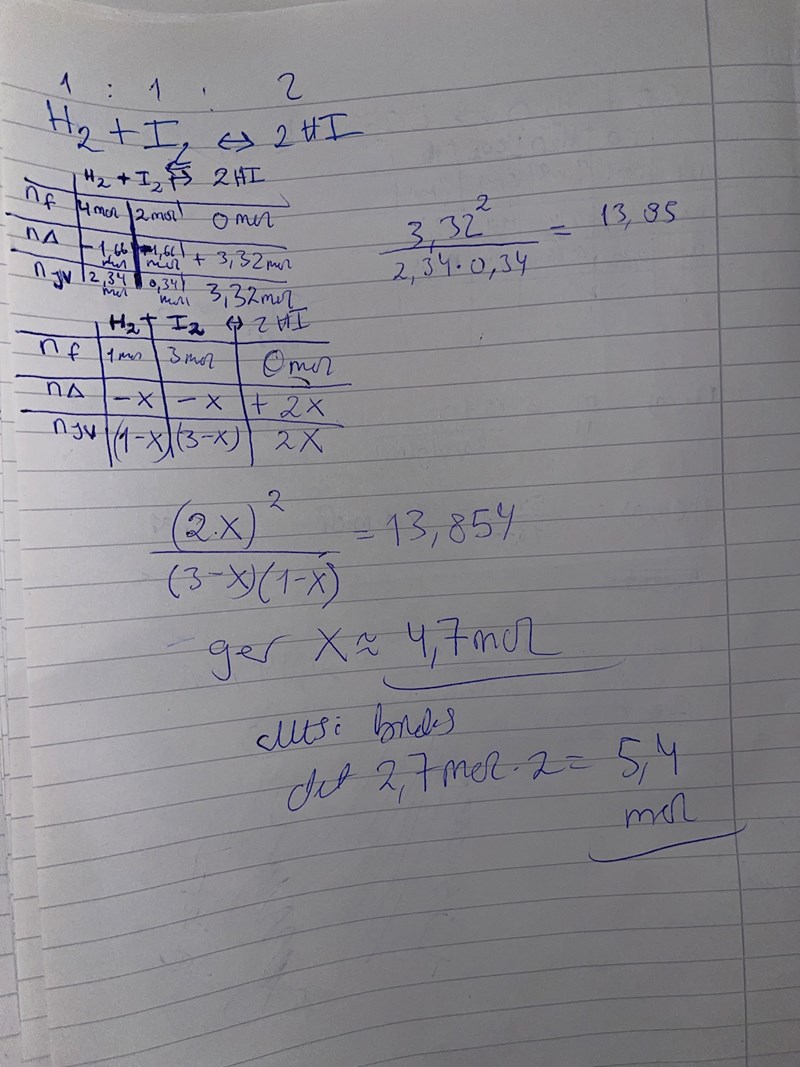 1 : 1 : 2
H₂ + I₂ ⇔ 2HI
H₂ + I₂ ⇄ 2HI
nf 4mol 2mol 0mol
nΔ -1,66 mol -1,66 mol + 3,32mol
njv 2,34 mol 0,34 mol 3,32mol
3,32² / 2,34·0,34 = 13,85
H₂ + I₂ ⇔ 2HI
nf 1mol 3mol 0mol
nΔ -x -x + 2x
njv (1-x) (3-x) 2x
(2·x)² / (3-x)(1-x) = 13,854
ger x ≈ 4,7mol
det 2,7mol·2 = 5,4
mol